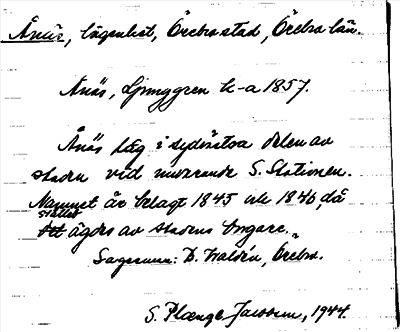 Ånäs, lägenhet, Örebro stad, Örebro län.
Anäs, Ljunggren k-a 1857.
Ånäs låg i sydöstra delen av
staden vid nuvarande S. Stationen.
Namnet är belagt 1845 och 1846, då
stället ägdes av stadens borgare.
Sagesman: D. Waldén, Örebro.
S. Jansson, 1944.